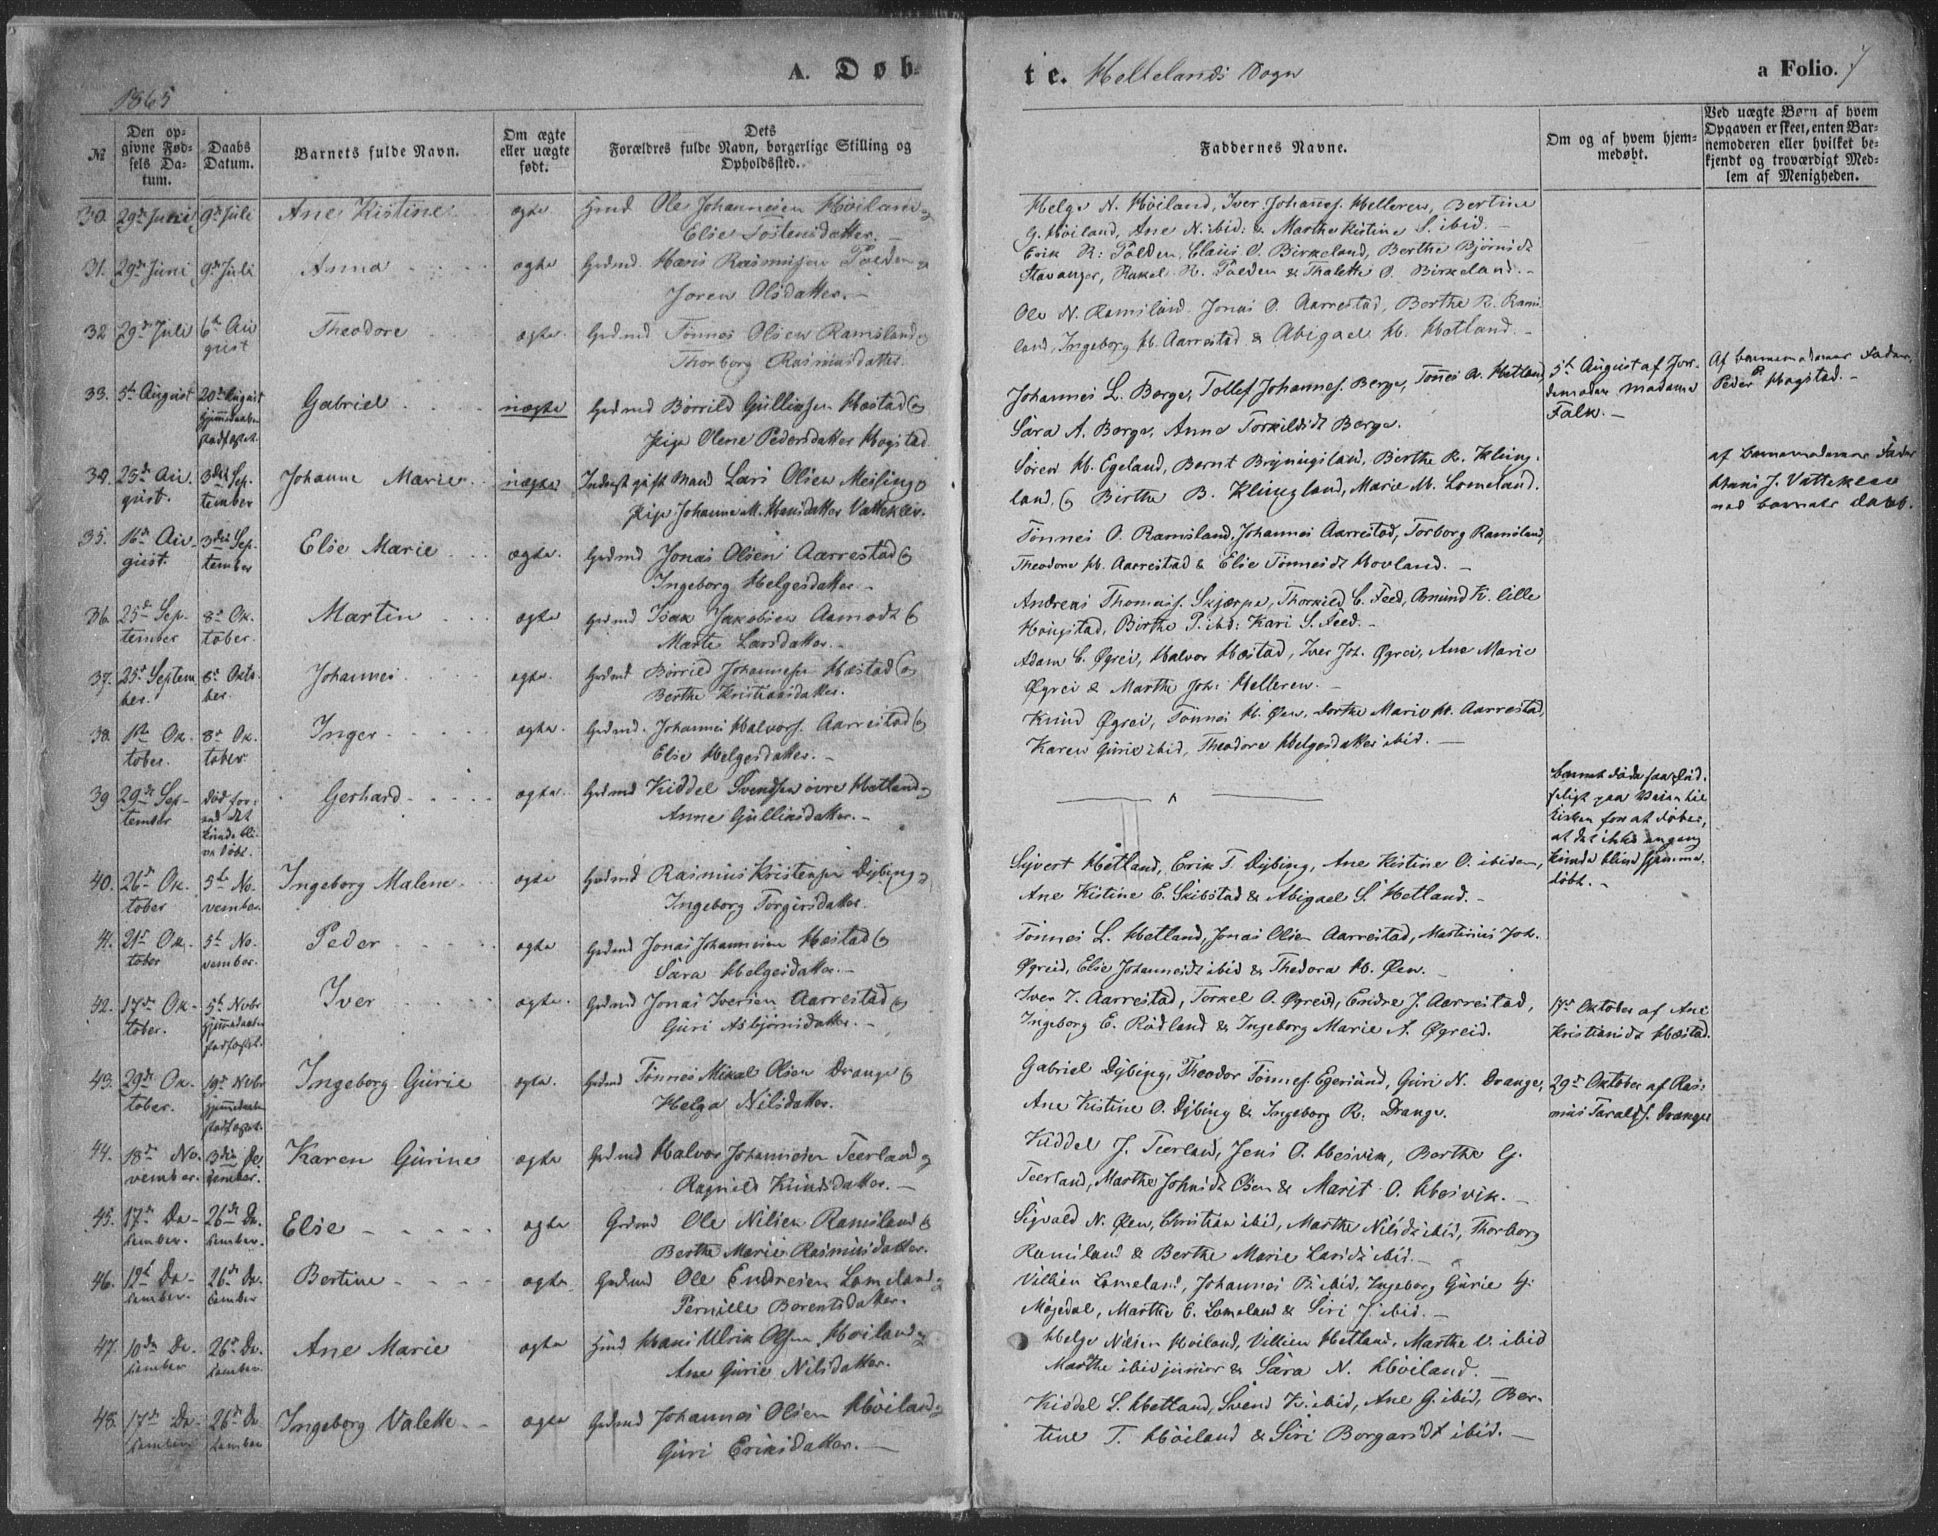 A. Døb-
te. Heltelands Sogn
a Folio. 7
1865
№
Den op-
givne Fød-
sels Da-
tum.
Daabs
Datum.
Barnets fulde Navn.
Om ægte
eller uægte
født.
Dets
Forældres fulde Navn, borgerlige Stilling og
Opholdssted.
Faddernes Navne.
Om og af hvem hjem-
medøbt.
Ved uægte Børn af hvem
Opgaven er skeet, enten Bar-
nemoderen eller hvilket be-
kjendt og troværdigt Med-
lem af Menigheden.
30. 29de Juni 9de Juli Ane Kistine ægte Hmd Ole Johannesen Höiland og
Else Tostensdatter.
Helge N. Höiland, Iver Johanes. Helleren, Bertine
G. Höiland, Ane N. ibid: & Marthe Kistine S. ibid.
31. 29de Juni 9de Juli Anna ægte Grdmd Hans Rasmussen Polden og
Joren Olsdatter.
Erik R: Polden, Claus O. Birkeland, Berthe Bjørnsdt
Stavanger, Rakel R. Polden & Thalette O. Birkeland.
32 29de Juli 6te Au
gust Theodore ægte Grdmd Tönnes Olsen Ramsland og
Thorborg Rasmusdatter
Ole N. Ramsland Jonas O. Aarrestad, Berthe R. Rams
land, Ingeborg H. Aarrestad & Abigael H. Hetland.
33. 5te August 20de August
Hjemmedaaben
stadfæstet. Gabriel uægte Grdmd Börrild Gulliksen Hæstad og
Pige Olene Pedersdatter Hogstad
Johannes L. Berge, Tollef Johannes. Berge, Tönes A. Hetland
Sara A. Berge, Anne Torkildsdt Berge.
5te August af Jor-
demoder Madame
Falk.
Af barnemoderens Fader,
Peder P. Hogstad.
34. 25de Au-
gust. 3die Sep-
tember Johanne Marie uægte Inderst gift Mand Lars Olsen Meising og
Pige Johanne M. Hansdatter Vatteklev.
Sören H. Egeland, Bernt Bryningsland, Berthe R. Kling-
land, og Birthe B. Klingland, Marie M. Lomeland.
af barnemoderens Fader
Hans J. Vatteklev
ved barnets daab.
35. 16de Au-
gust. 3die Sep-
tember Else Marie ægte Grdmd Jonas Olsen Aarrestad og
Ingeborg Helgesdatter
Tönnes O. Ramsland, Johannes Aarrestad, Torborg Ramsland,
Theodore H. Aarrestad & Elsie Tönnesdt Hovland.
36. 25de Sep-
tember 8de Ok-
tober. Martin ægte Grdmd Isak Jakobsen Aamodt og
Marte Larsdatter.
Andreas Thomas. Skjærpe, Thorkild C. Feed, Asmund K. lille
Hougstad, Birthe P. ibd: Kari S. Feed.
37. 25de Septem
ber. 8de Okto
ber. Johannes ægte Grdmd Börrild Johannesen Hæstad og
Berthe Kristiansdatter.
Adam C. Øgrei, Halvor Hæstad, Iver Joh. Øgrei, Ane Marie
Øgrei & Marthe Joh: Helleren.
38. 1ste Ok-
tober. 8de Ok-
tober. Inger ægte Grdmd. Johannes Halvors. Aarrestad og
Else Helgesdatter.
Knud Øgrei, Tönnes H. Øen, Dorthe Marie H. Aarrestad,
Karen Gurie ibid, Theodore Helgesdatter ibid.
39 29de Sep-
tember Död for-
end det
kunde bli-
ve döbt. Gerhard ægte Grdmd Kiddel Svendsen övre Hetland og
Anne Gulliksdatter.
barnet döde saa plud-
seligt paa Veien til
Kirken for at döbes,
at det ikke engang
kunde blive hjemme-
döbt.
40. 26de Ok-
tober 5te No-
vember. Ingeborg Malene ægte Grdmd Rasmus Kristensen Dybing og
Ingeborg Torgersdatter.
Sigvert Hetland, Erik T. Dybing, Ane Kistine O. ibidem,
Ane Kistine E. Skibstad & Abigael S. Hetland.
41. 21de Ok-
tober 5te No-
vember. Peder ægte Grdmd Jonas Johannesen Hæstad og
Sara Helgesdatter.
Tönnes L. Hetland, Jonas Olsen Aarrestad, Martinus Joh.
Øgreid, Else Johannesdt ibid & Thedora H. Øen.
42. 17de Ok-
tober. 5te Novbr
Hjemmedaaben
stadfæstet. Iver ægte Grdmd Jonas Iversen Aarrestad og
Guri Asbjørnsdatter.
Iver J. Aarrestad, Torkel O. Øgreid, Endre J. Aarrestad,
Ingeborg E. Rödland & Ingeborg Marie A. Øgreid.
17de Oktober af Ane
Kristiansdt Hæstad.
43. 29de Ok-
tober. 19de Novbr
Hjemmedaaben
stadfæstet. Ingeborg Gurie ægte Grdmd Tönnes Mikal Olsen Drange og
Helga Nilsdatter.
Gabriel Dybing, Theodor Tönnes. Egersund, Guri N. Drange,
Ane Kistine O. Dybing & Ingeborg R. Drange.
29de Oktober af Ras-
mus Taralds. Drange
44. 18de No-
vember. 3die De-
cember. Karen Gurine ægte Grdmd Halvor Johannesen Teerland og
Ragnild Knudsdatter.
Kiddel J. Teerland, Jens O. Hesvik, Berthe G.
Teerland, Marthe Johnsdt Øen & Marit O. Hesvik.
45. 17de De-
cember. 26de De-
cember. Else ægte Grdmd Ole Nilsen Ramsland og
Berthe Marie Rasmusdatter.
Sigvald N. Øen, Christian ibid, Marthe Nilsdt ibid, Thorborg
Ramsland & Berthe Marie Larsdt ibid.
46. 12te De-
cember. 26de De-
cember Bertine ægte Grdmd Ole Endresen Lomeland og
Pernille Berentsdatter.
Villien Lomeland, Johannes P. ibid, Ingeborg Gurie G.
Mögedal, Marthe E. Lomeland & Siri J. ibid.
47. 10de De-
cember 26de De-
cember Ane Marie ægte Hmd Hans Ulrik Olsen Höiland og
Ane Gurie Nilsdatter.
Helge Nilsen Höiland, Villien Hetland, Marthe V. ibid
Marthe ibid junior & Sara N. Höiland.
48. 17de De-
cember 26de De-
cember Ingeborg Valette ægte Grdmd Johannes Olsen Höiland og
Guri Eriksdatter.
Kiddel S. Hetland, Svend K. ibid, Ane G. ibid, Ber-
tine T. Höiland & Siri Borgarsdt ibid.